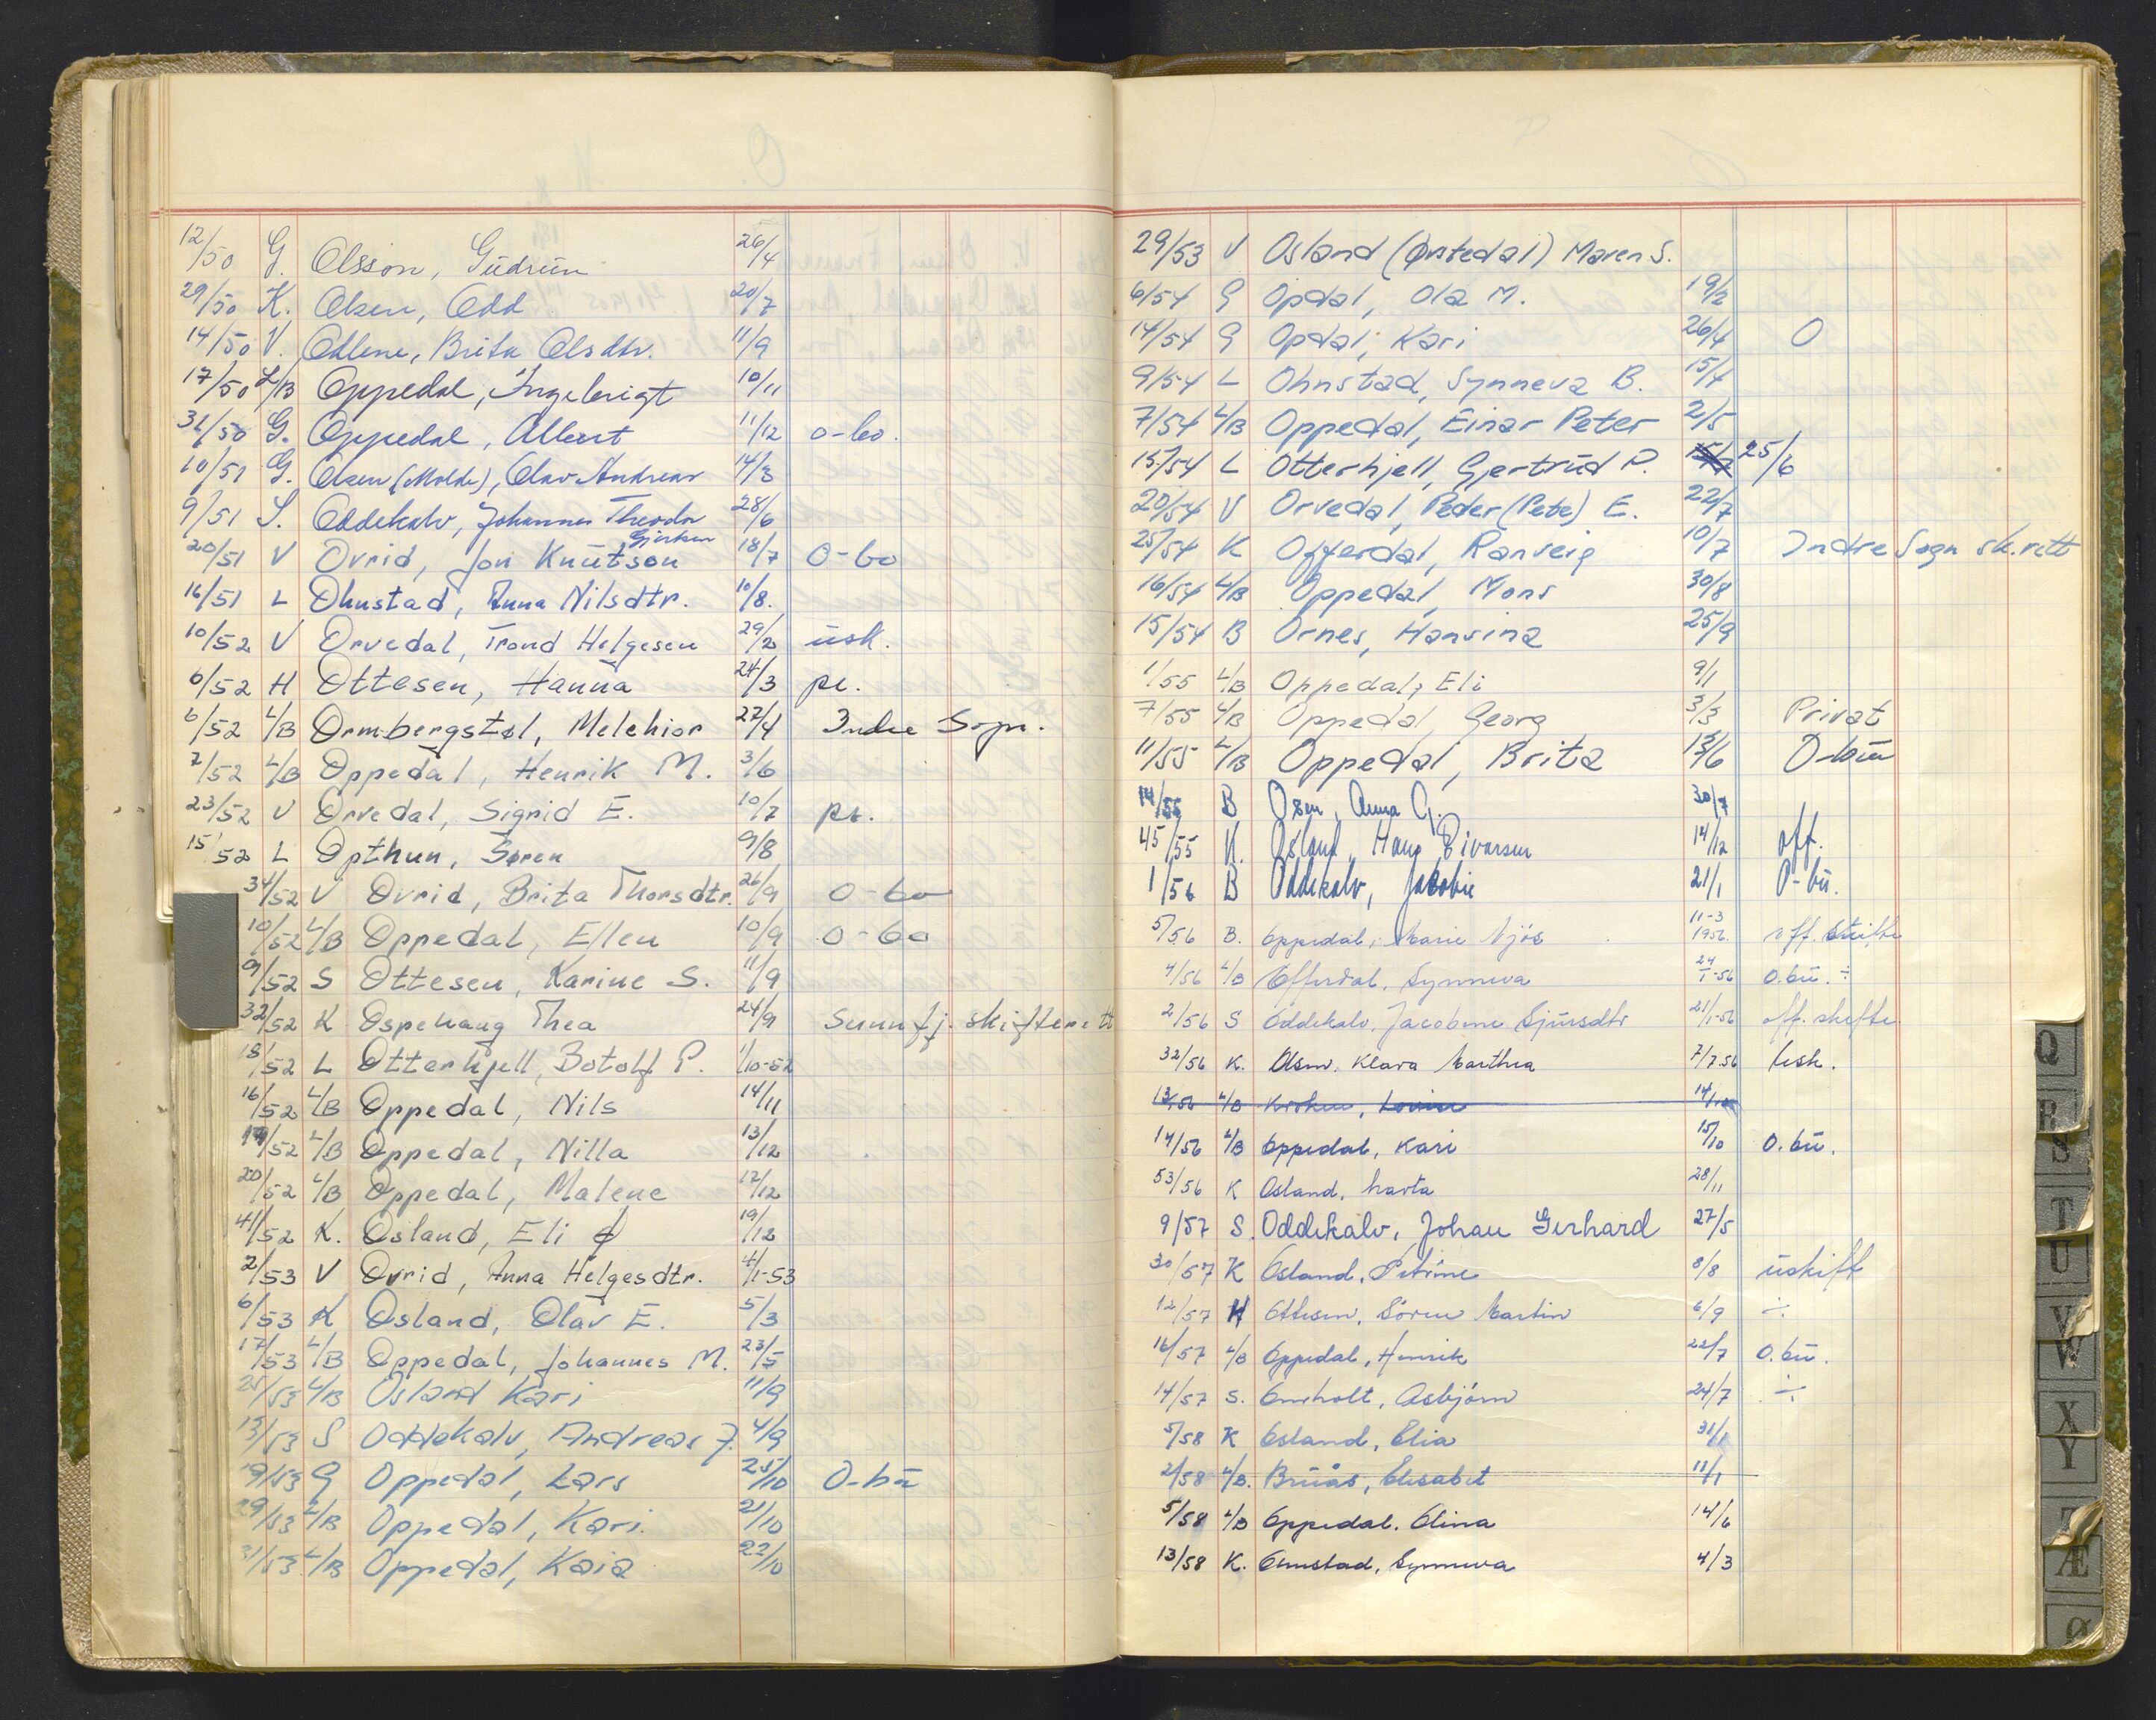 12/50 G. Olsson, Gudrun 26/4
29/50 K. Olsen, Odd 20/7
14/50 V. Odlene, Brita Olsdtr. 11/9
17/50 L/B Oppedal, Ingebrigt 10/11
31/50 G. Oppedal, Albert 11/12 o-bo.
10/51 G. Olsen (Molde), Olav Andreas 14/3
9/51 S. Oddekalv, Johannes Theodor 28/6
20/51 V Ovrid, Jon Knutson 18/7 o-bo
16/51 L Ohnstad, Anna Nilsdtr. 10/8.
10/52 V Orvedal, Trond Helgesen 29/2 usk.
6/52 H Ottesen, Hanna 24/3 pr.
6/52 L/B Ormbergstøl, Melchior 27/4 Indre Sogn.
7/52 L/B Oppedal, Henrik M. 3/6
23/52 V Orvedal, Sigrid E. 10/7 pr.
15/52 L Opthun, Søren 9/8
34/52 V Ovrid, Brita Thorsdtr. 26/9 o-bo
10/52 L/B Oppedal, Ellen 10/9 o-bo
9/52 S Ottesen, Karine S. 11/9
32/52 K Ospehaug Thea 24/9 Sunnfj. skifterett
18/52 L Otterhjell, Botolf P. 1/10-52
16/52 L/B Oppedal, Nils 14/11
19/52 L/B Oppedal, Nilla 13/12
20/52 L/B Oppedal, Malene 12/12
41/52 K. Osland, Eli Ø 19/12
2/53 V Ovrid, Anna Helgesdtr. 4/1-53
6/53 K Osland, Olav E. 5/3
17/53 L/B Oppedal, Johannes M. 23/5
25/53 L/B Osland Kari 11/9
13/53 S Oddekalv, Andreas J. 4/9
19/53 G Oppedal, Lars 25/10 O-bu
29/53 L/B Oppedal, Kari 21/10
31/53 L/B Oppedal, Kaia 22/10
29/53 V Osland (Ørstedal) Maren S.
6/54 G Opdal, Ola M. 19/2
14/54 G Opdal, Kari 26/4 O
9/54 L Ohnstad, Synneva B. 15/4
7/54 L/B Oppedal, Einar Peter 2/5
15/54 L Otterhjell, Gjertrud P. 25/6
20/54 V Orvedal, Peder (Pete) E. 22/7
25/54 K Offerdal, Ranveig 10/7 Indre Sogn sk.rett
16/54 L/B Oppedal, Mons 30/8
15/54 B Ornes, Hansina 25/9
1/55 L/B Oppedal, Eli 9/1
7/55 L/B Oppedal, Georg 3/3 Privat
11/55 L/B Oppedal, Brita 15/6 O-bu
14/55 B Osen, Anna G. 30/7
45/55 K. Osland, Hans Eivarsen 14/12 off.
1/56 B Oddekalv, Jakobie 21/1 O-bu.
5/56 B. Oppedal, Marie Njøs 11-3 1956. off. skifte
4/56 L/B Offerdal, Synneva 24/1-56 O.bu. ÷
2/56 S Oddekalv, Jacobine Sjursdtr 21/1-56 off. skifte
32/56 K. Olsen, Klara Marthea 7/7.56 Usk.
13/56 L/B 14/12
14/56 L/B Oppedal, Kari 15/10 O.bu.
53/56 K Osland, Marta 28/11
9/57 S. Oddekalv, Johan Gerhard 27/5
30/57 K Osland, Petrine 8/8 uskift
12/57 H Ottesen, Sören Martin 6/9 ÷
16/57 L/B Oppedal, Henrik 22/7 O.bu.
14/57 S. Omholt, Asbjörn 24/7 ÷
5/58 K Osland, Elia 31/1
2/58 L/B. Bruås, Elisabet 11/1
5/58 L/B Oppedal, Olina 14/6
13/58 K. Omstad, Synneva 4/3
Q
R
S
T
U
V
W
X
Y
Z
Æ
Ø